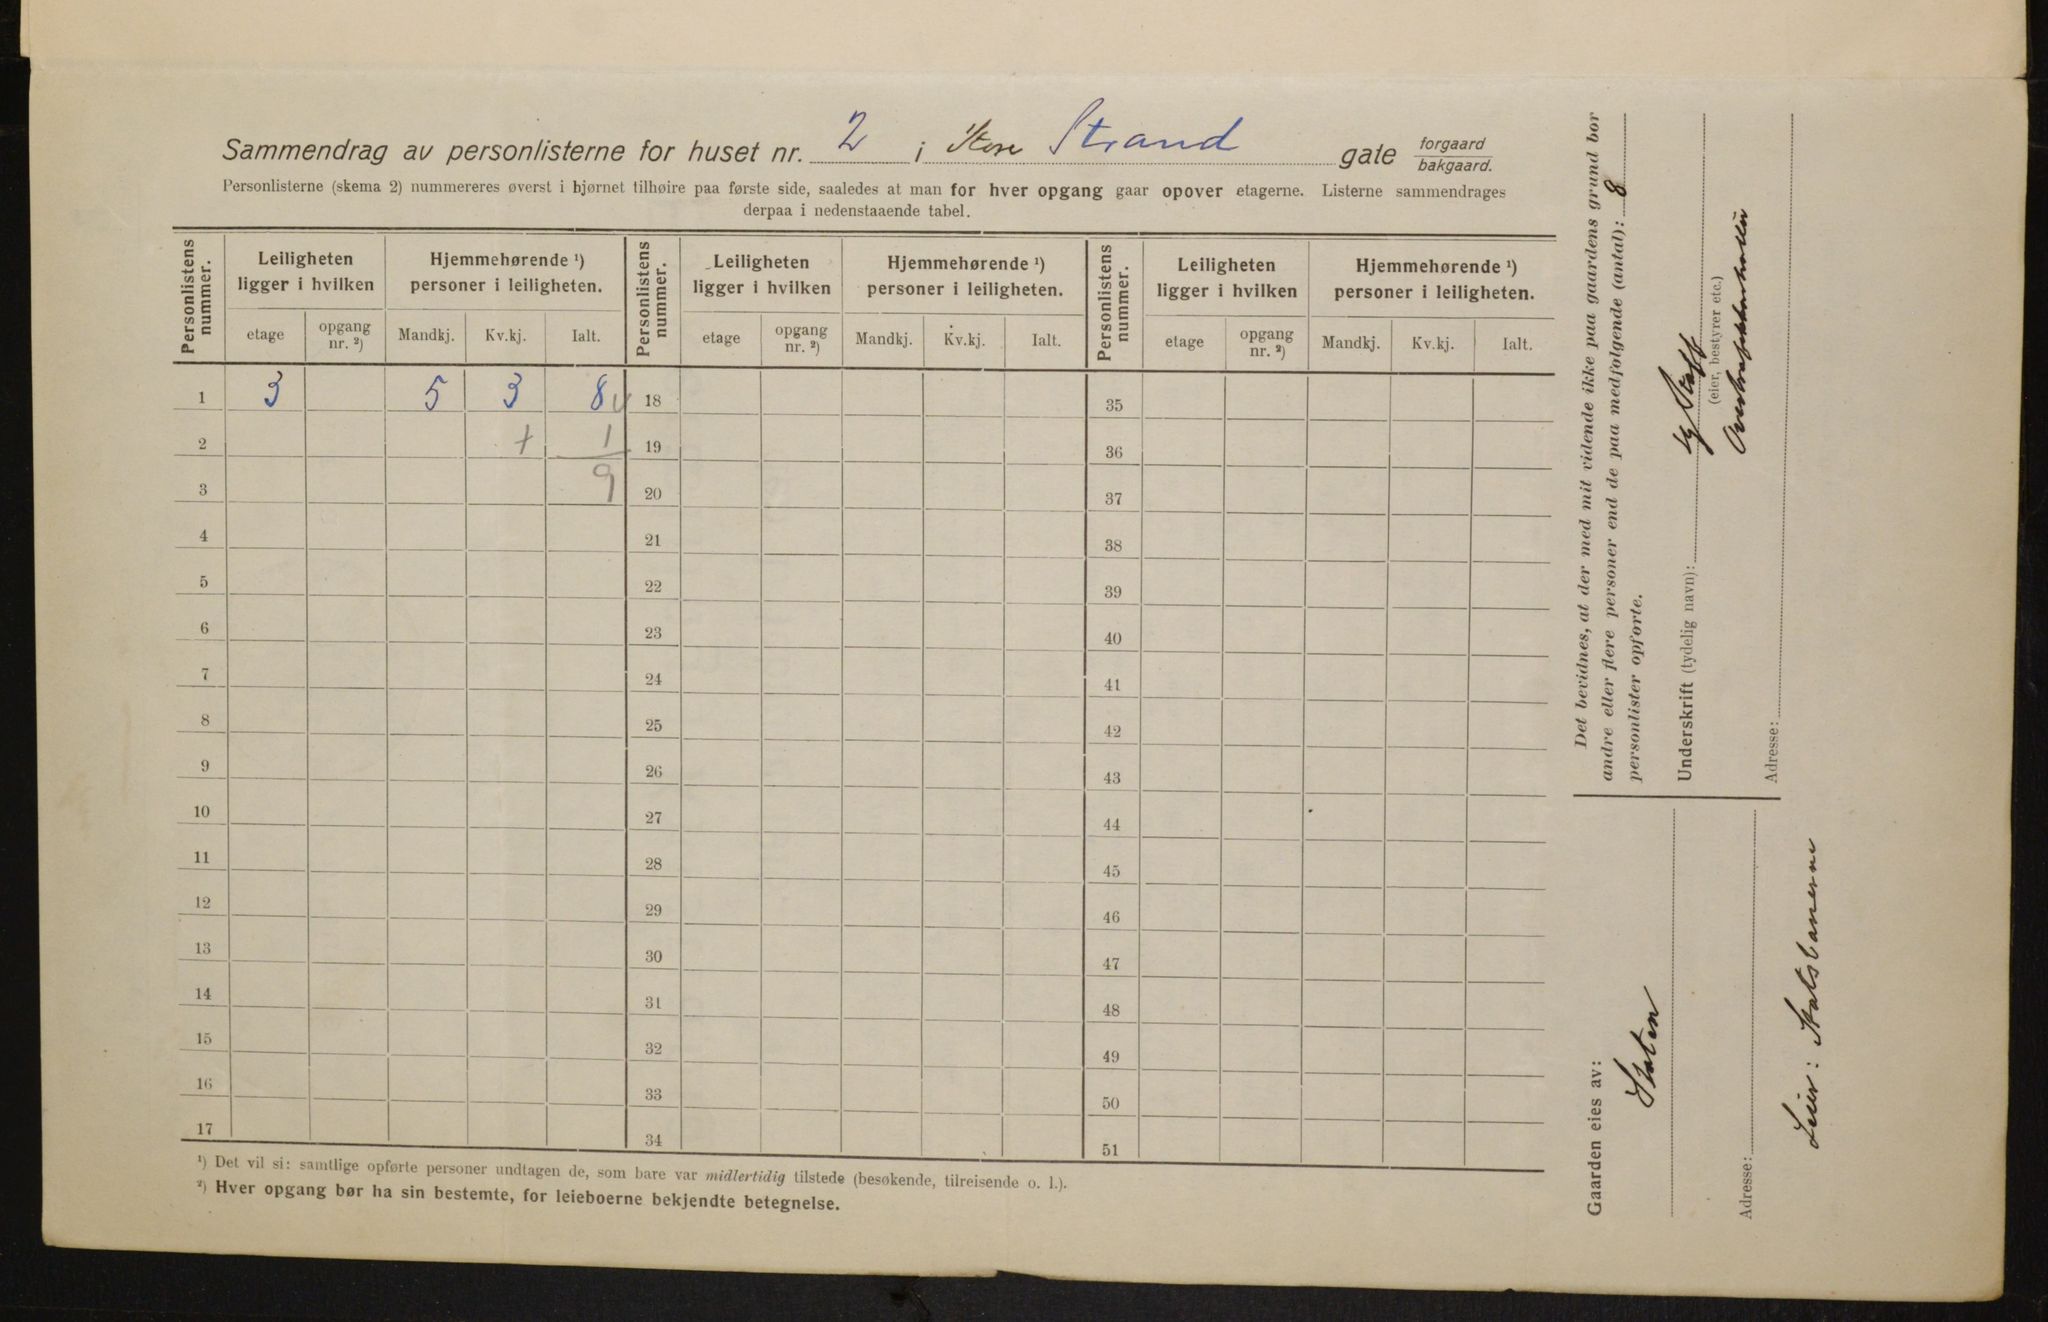 Sammendrag av personlisterne for huset nr. 2 i Store Strand gate forgaard
bakgaard.
Personlisterne (skema 2) nummereres øverst i hjørnet tilhøire paa første side, saaledes at man for hver opgang gaar opover etagerne. Listerne sammendrages
derpaa i nedenstaaende tabel.
Personlistens nummer. Leiligheten ligger i hvilken Hjemmehørende ¹) personer i leiligheten. Personlistens nummer. Leiligheten ligger i hvilken Hjemmehørende ¹) personer i leiligheten. Personlistens nummer. Leiligheten ligger i hvilken Hjemmehørende ¹) personer i leiligheten.
etage opgang nr. ²) Mandkj. Kv.kj. Ialt. etage opgang nr. ²) Mandkj. Kv.kj. Ialt. etage opgang nr. ²) Mandkj. Kv.kj. Ialt.
1 3 5 3 8 18 35
2 + 1 19 36
3 9 20 37
4 21 38
5 22 39
6 23 40
7 24 41
8 25 42
9 26 43
10 27 44
11 28 45
12 29 46
13 30 47
14 31 48
15 32 49
16 33 50
17 34 51
¹) Det vil si: samtlige opførte personer undtagen de, som bare var midlertidig tilstede (besøkende, tilreisende o. l.).
²) Hver opgang bør ha sin bestemte, for leieboerne bekjendte betegnelse.
Det bevidnes, at der med mit vidende ikke paa gaardens grund bor
andre eller flere personer end de paa medfølgende (antal): 8
personlister opførte.
Underskrift (tydelig navn):
(eier, bestyrer etc.)
Adresse:
Gaarden eies av:
Staten
Adresse:
Leier: Statsbanerne